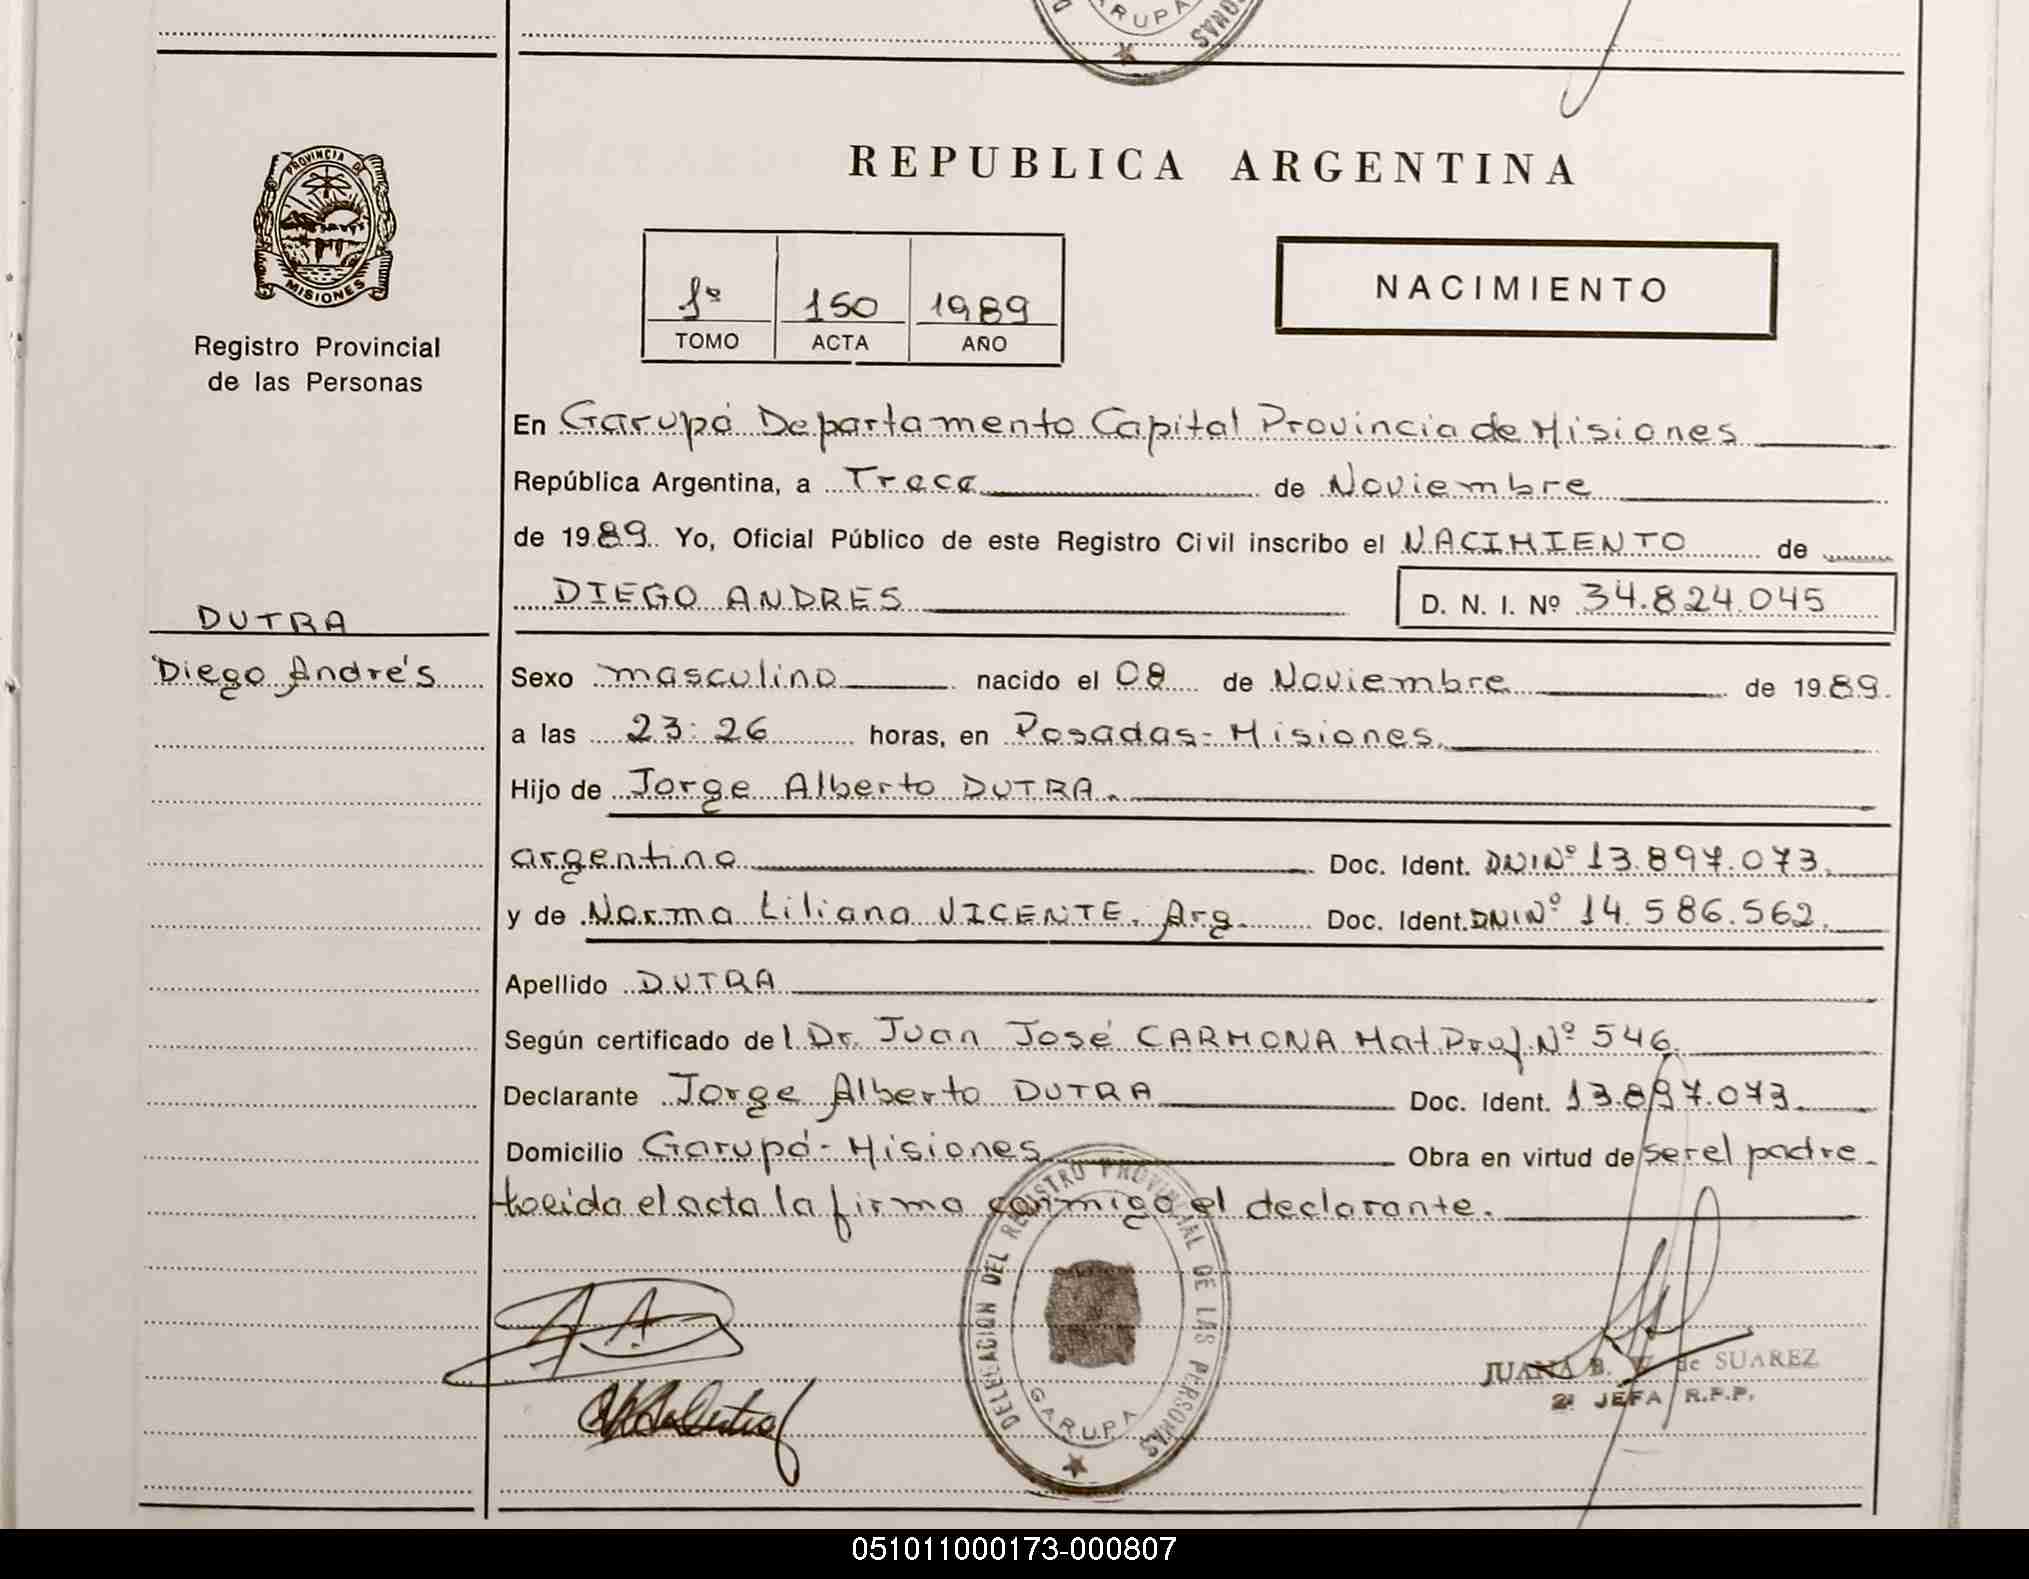 GARUPA
PERSONAS
PROVINCIA DE
MISIONES
Registro Provincial
de las Personas
REPUBLICA ARGENTINA
1º 150 1989
TOMO ACTA AÑO
NACIMIENTO
En Garupá Departamento Capital Provincia de Misiones
República Argentina, a Trece de Noviembre
de 1989. Yo, Oficial Público de este Registro Civil inscribo el NACIMIENTO de
DIEGO ANDRES D. N. I. Nº 34.824.045
DUTRA
Diego Andrés
Sexo masculino nacido el 08 de Noviembre de 1989.
a las 23:26 horas, en Posadas-Misiones.
Hijo de Jorge Alberto DUTRA.
argentino Doc. Ident. DNI Nº 13.897.073.
y de Norma Liliana VICENTE. Arg. Doc. Ident. DNI Nº 14.586.562.
Apellido DUTRA
Según certificado del Dr. Juan José CARMONA Mat. Prof. Nº 546.
Declarante Jorge Alberto DUTRA Doc. Ident. 13.897.073.
Domicilio Garupá-Misiones Obra en virtud de ser el padre.
Leída el acta la firma conmigo el declarante.
DELEGACION DEL REGISTRO PROVINCIAL DE LAS PERSONAS
GARUPA
JUANA B. V. de SUAREZ
2ª JEFA R.P.P.
051011000173-000807